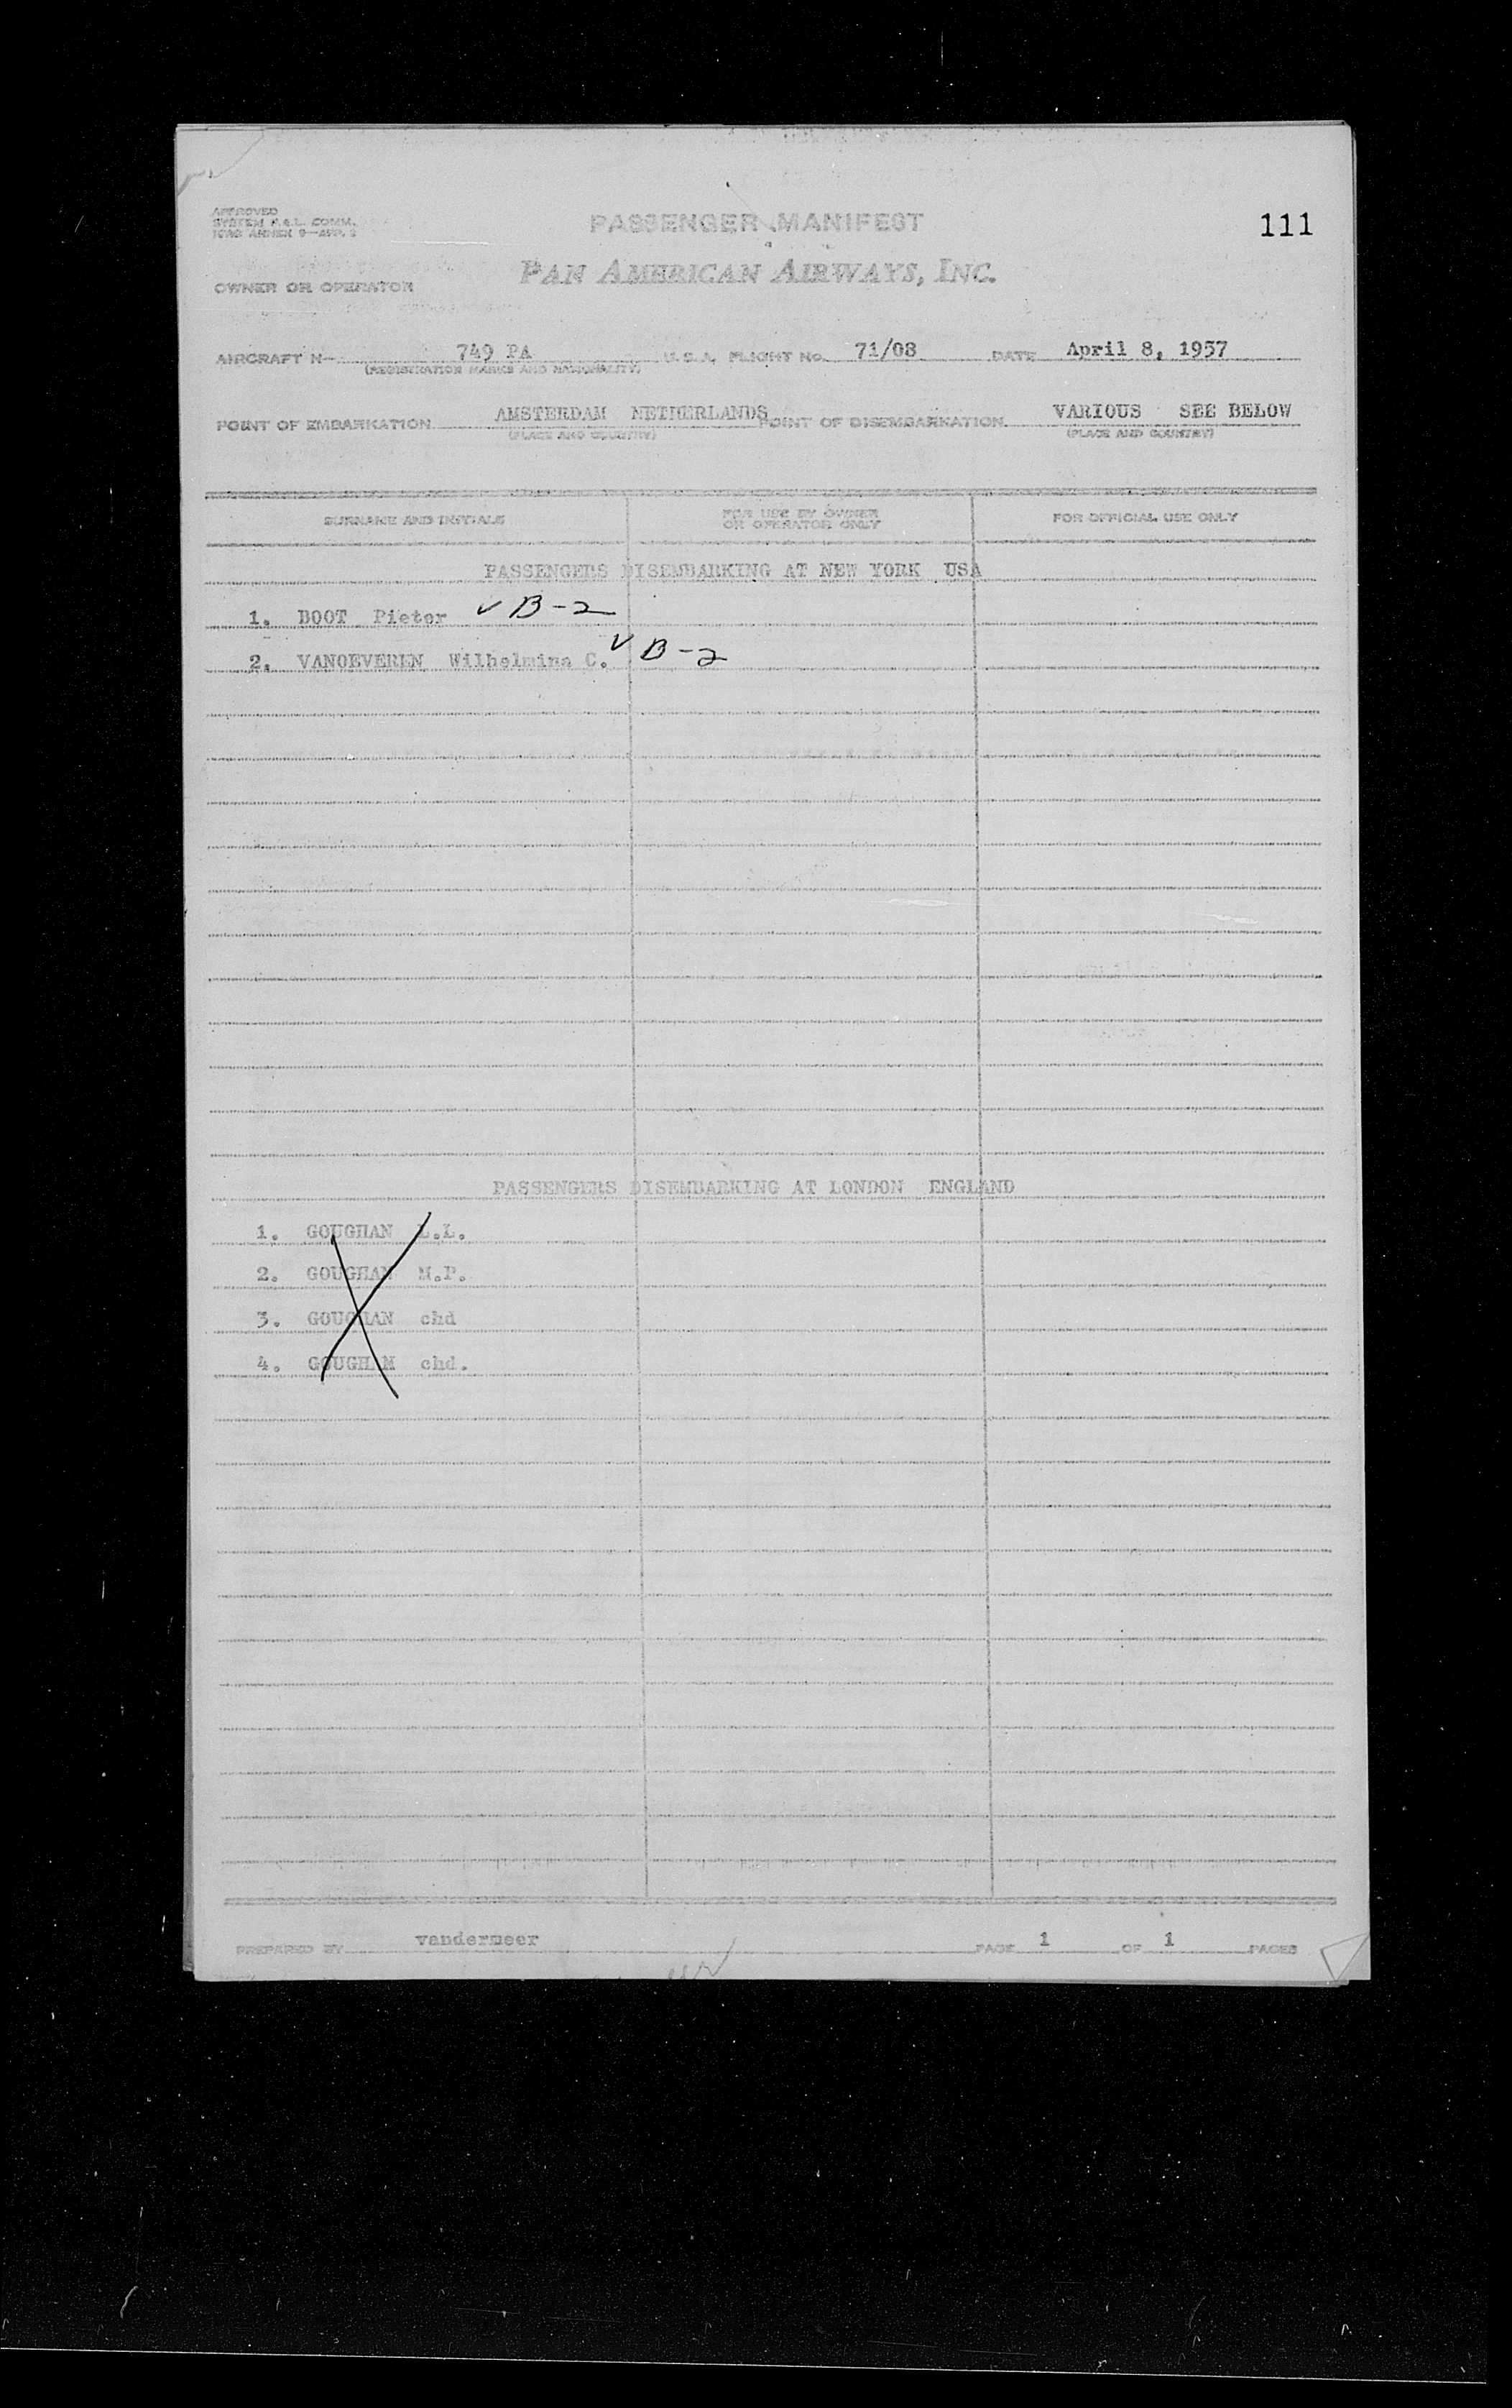 APPROVED
SYSTEM F.&L. COMM.
ICAO ANNEX 9—APP. 2
PASSENGER MANIFEST
111
PAN AMERICAN AIRWAYS, INC.
OWNER OR OPERATOR
AIRCRAFT N— 749 PA U.S.A. FLIGHT NO. 71/08 DATE April 8, 1957
(REGISTRATION MARKS AND NATIONALITY)
POINT OF EMBARKATION AMSTERDAM NETHERLANDS POINT OF DISEMBARKATION VARIOUS SEE BELOW
(PLACE AND COUNTRY) (PLACE AND COUNTRY)
SURNAME AND INITIALS FOR USE BY OWNER OR OPERATOR ONLY FOR OFFICIAL USE ONLY
PASSENGERS DISEMBARKING AT NEW YORK USA
1. BOOT Pieter ✓ B-2
2. VANOEVEREN Wilhelmina C. ✓ B-2
PASSENGERS DISEMBARKING AT LONDON ENGLAND
1. GOUGHAN L.L.
2. GOUGHAN M.P.
3. GOUGHAN chd
4. GOUGHAN chd.
PREPARED BY vandermeer PAGE 1 OF 1 PAGES